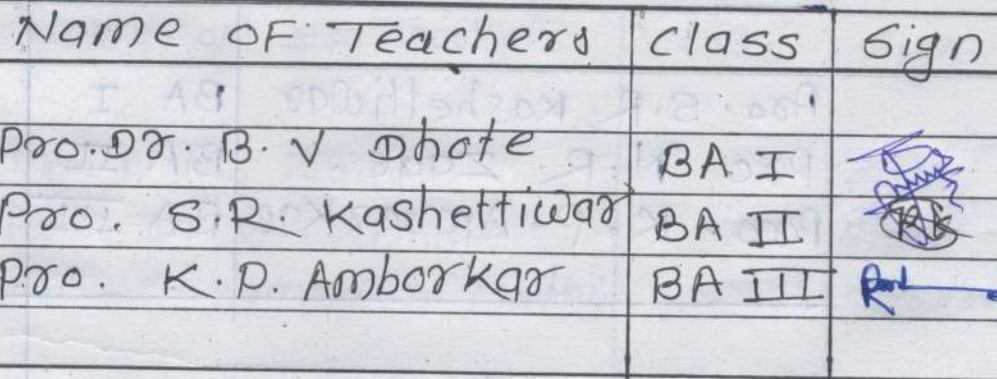 Name OF Teachers Class Sign
Pro. Dr. B. V Dhote BA I
Pro. S.R. Kashettiwar BA II
Pro. K.P. Amborkar BA III